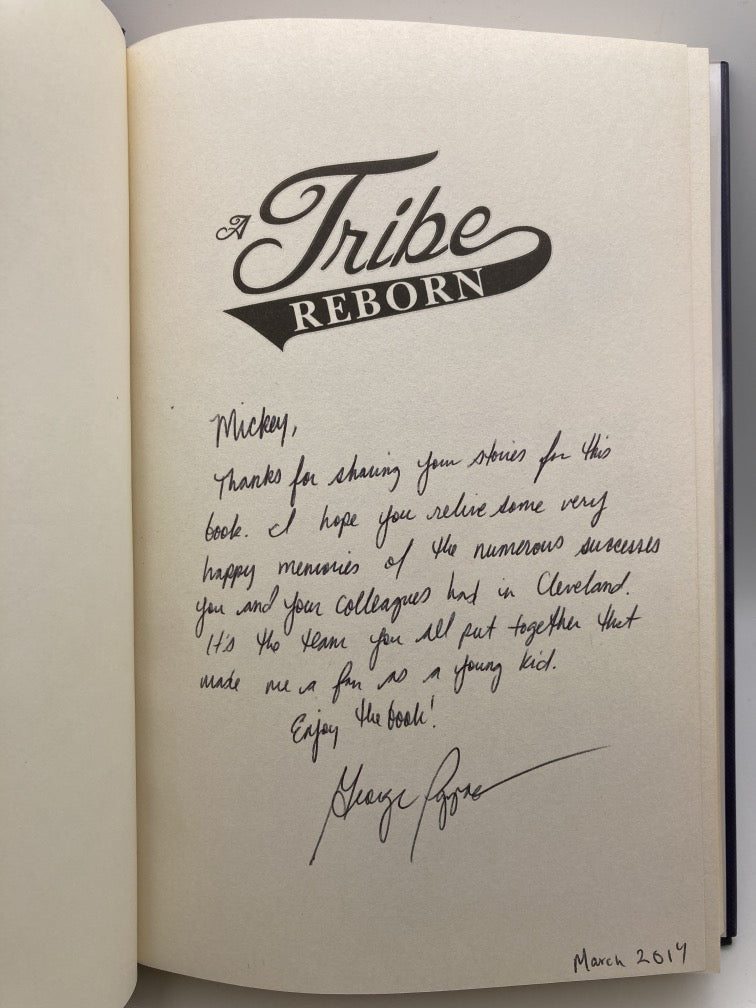 A Tribe
REBORN
Mickey,
Thanks for sharing your stories for this
book. I hope you relive some very
happy memories of the numerous successes
you and your colleagues had in Cleveland.
It's the team you all put together that
made me a fan as a young kid.
Enjoy the book!
George
March 2014